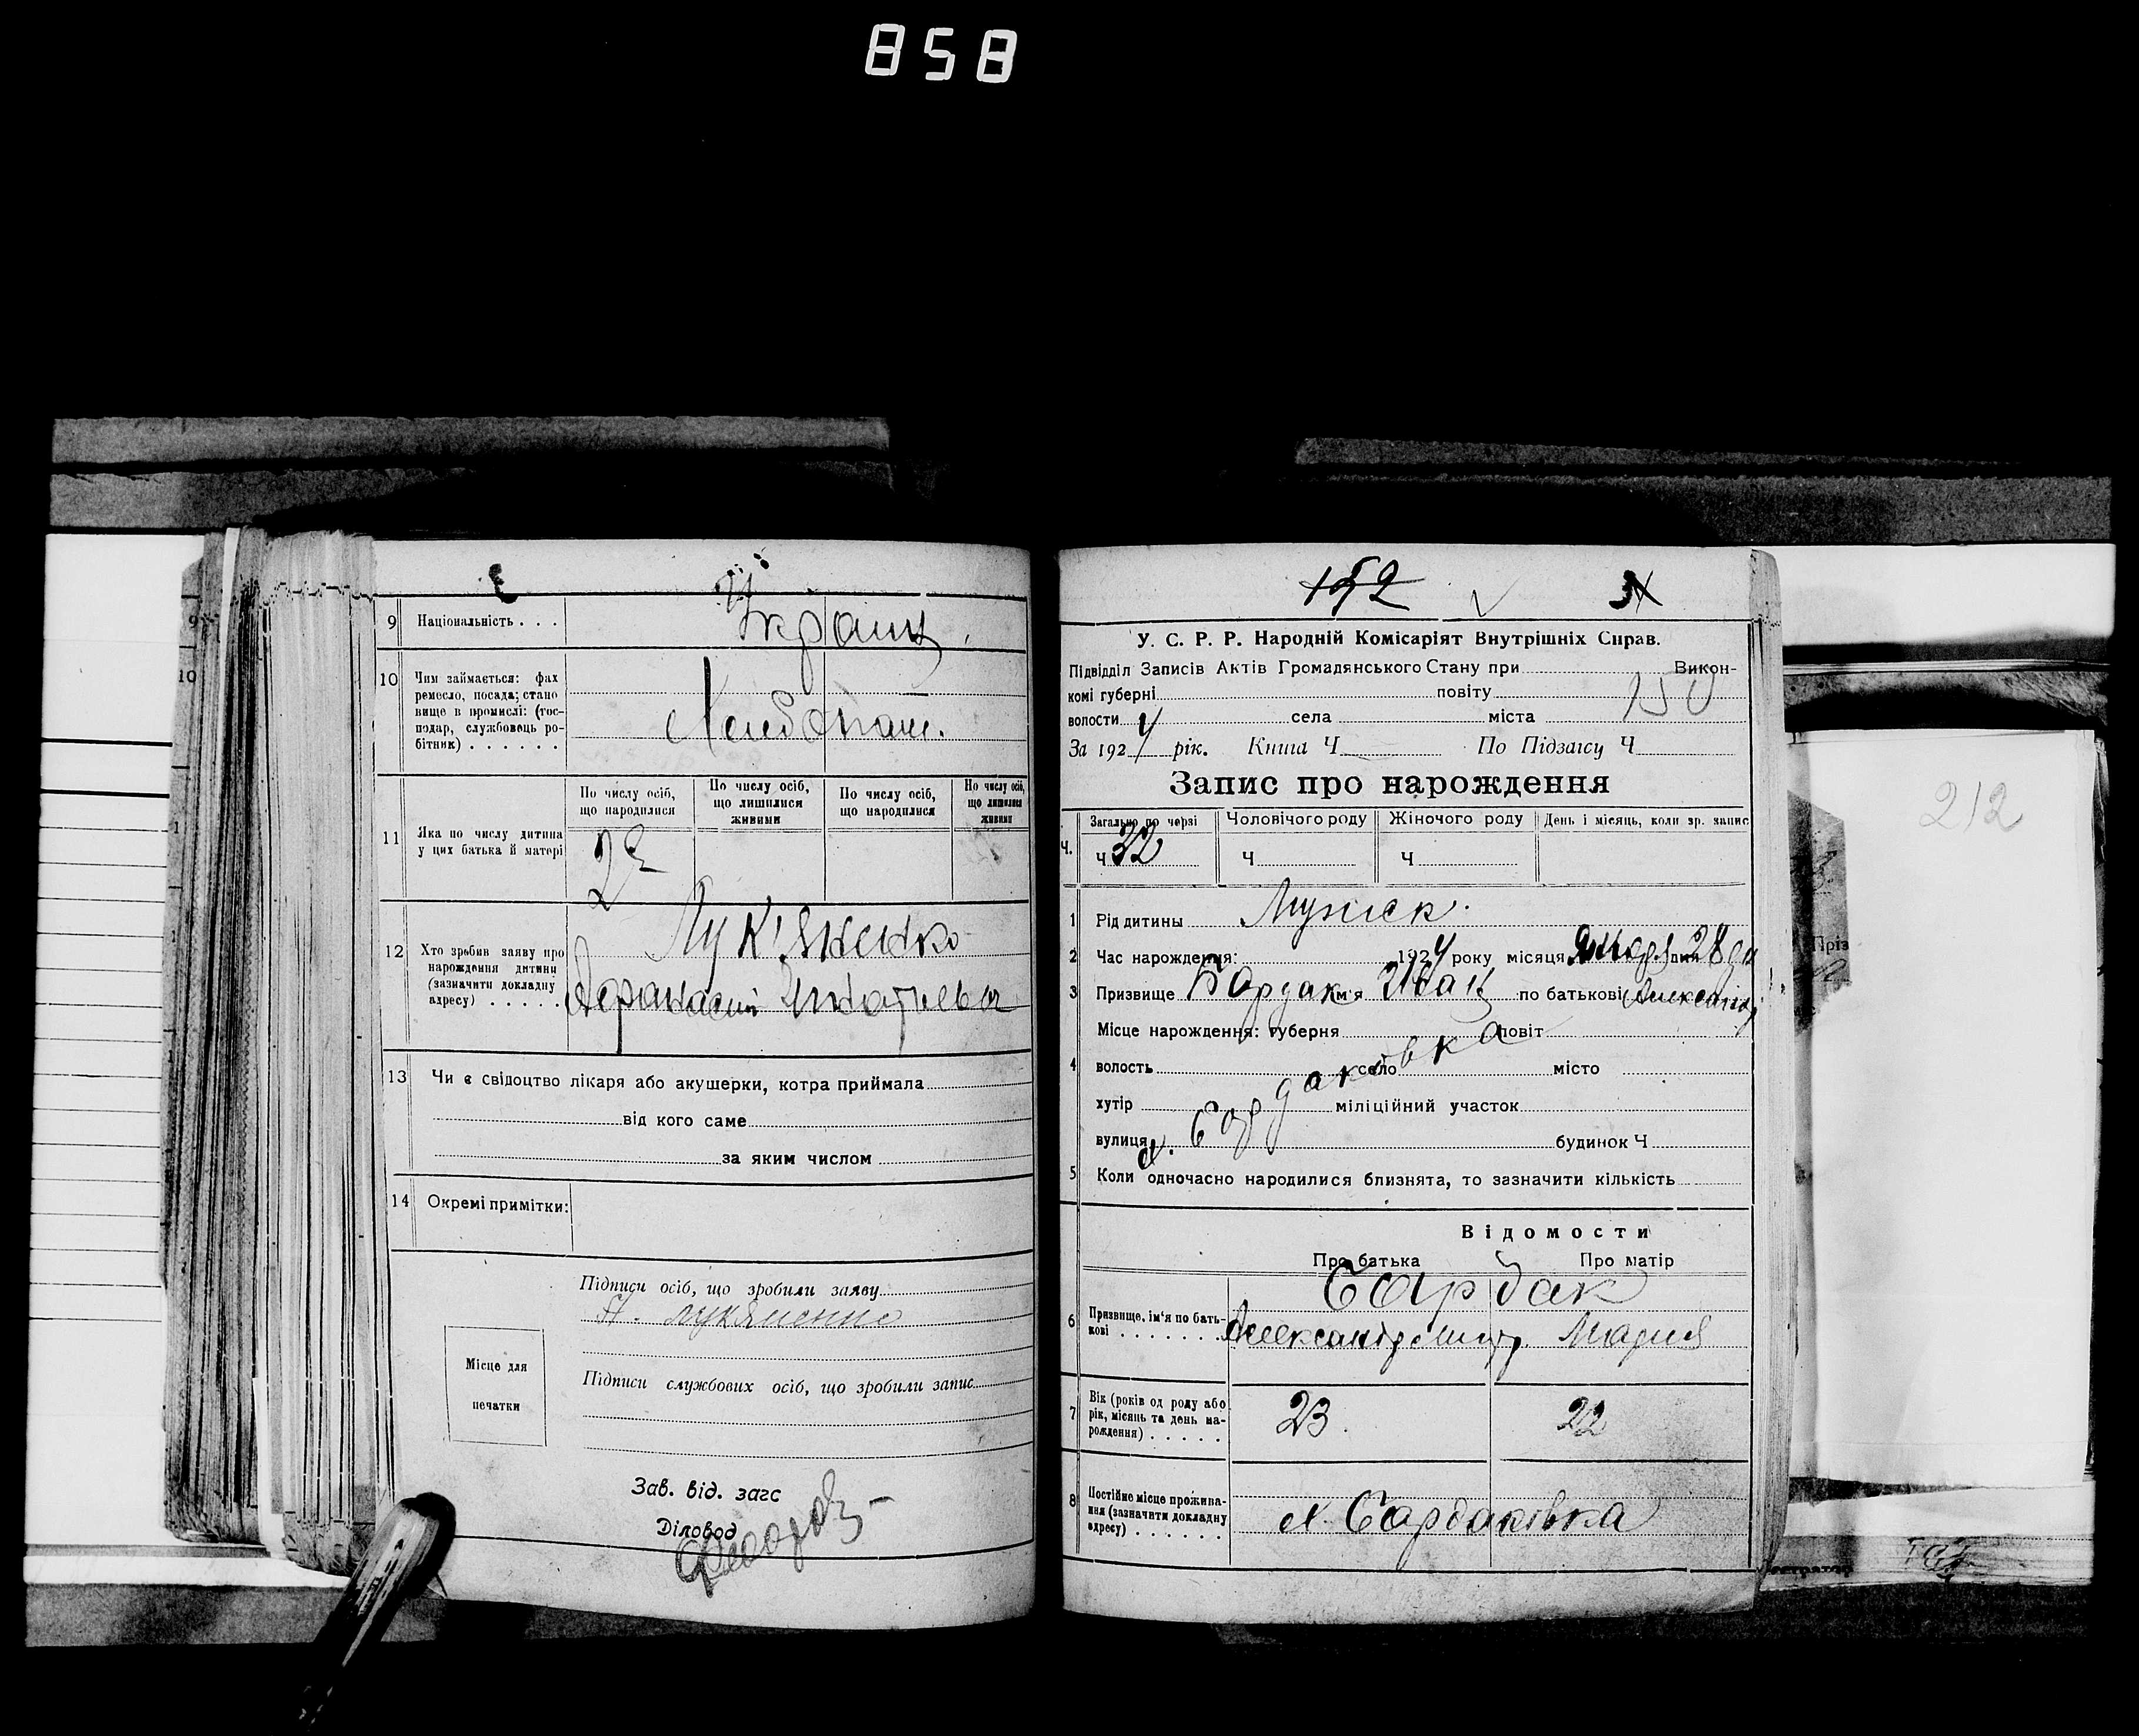 858
9 Національність . . .
Украин
10 Чим займається: фах
ремесло, посада; стано
вище в промислі: (гос-
подар, службовець ро-
бітник) . . . . . .
11 Яка по числу дитина
у цих батька й матері
По числу осіб,
що народилися
По числу осіб,
що лишилися
живими
По числу осіб,
що народилися
По числу осіб,
що лишилися
живими
2
12 Хто зробив заяву про
нарождення дитини
(зазначити докладну
адресу) . . . . .
Лук'яненко
Афанасий
13 Чи є свідоцтво лікаря або акушерки, котра приймала
від кого саме
за яким числом
14 Окремі примітки:
Підписи осіб, що зробили заяву
А. Лукяненко
Підписи службових осіб, що зробили запис
Місце для
печатки
Зав. від. загс
Діловод
152
У. С. Р. Р. Народній Комісаріят Внутрішніх Справ.
Підвідділ Записів Актів Громадянського Стану при Викон-
комі губерні повіту
150
волости села міста
За 1924 рік. Книга Ч По Підзагсу Ч
Запис про нарождення
Ч.
Загально по черзі
Ч 32
Чоловічого роду
Ч
Жіночого роду
Ч
День і місяць, коли зр. запис
1 Рід дитини Мужск.
2 Час нарождення: 1924 року місяця января дня 28
3 Призвище Бардак Ім'я Иван по батькові Александр
Місце нарождення: губерня повіт
4 волость село місто
хутір міліційний участок
вулиця будинок Ч
5 Коли одночасно народилися близнята, то зазначити кількість
Відомости
Про батька
Про матір
6 Призвище, ім'я по бать-
кові . . . . . . .
Сардак
Александр Мария
7 Вік (років од роду або
рік, місяць та день на-
рождення) . . . . .
23.
22
8 Постійне місце прожива-
ння (зазначити докладну
адресу) . . . . . .
х. Сардаківка
212
Пріз